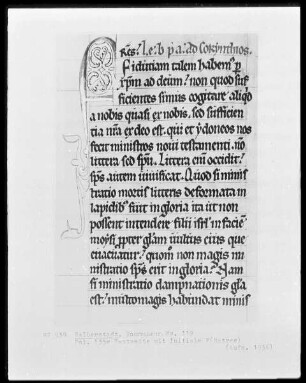 Res. Le. b. p. a. ad Corinthios.
Fiduciam talem habem' p
xpm ad deum. non quod suf
ficientes simus cogitare aliqd
a nobis quasi ex nobis. sed sufficien
tia nra ex deo est. qui et ydoneos nos
fecit ministros noui testamenti. nō
littera sed spu. Littera enī occidit.
sps autem uiuificat. Quod si minis
tratio mortis litteris deformata in
lapidib; fuit in gloria ita ut non
possent intendere filii isrl in faciē
moysi propter glam uultus eius que
euacuatur. quom non magis mi
nistratio sps erit in gloria. Nam
si ministratio dampnationis glia
est. multomagis habundat minis